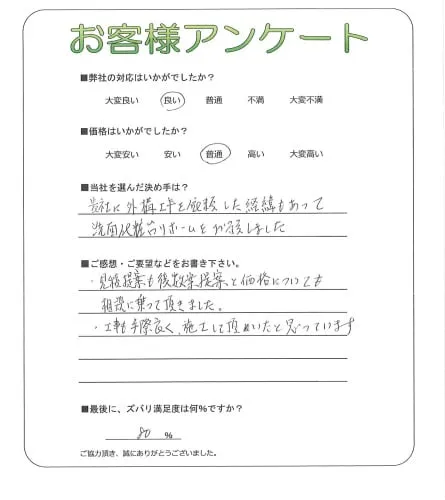 お客様アンケート
■弊社の対応はいかがでしたか？
大変良い 良い 普通 不満 大変不満
■価格はいかがでしたか？
大変安い 安い 普通 高い 大変高い
■当社を選んだ決め手は？
貴社に外構工事を依頼した経緯もあって
洗面化粧台リホームをお願しました
■ご感想・ご要望などをお書き下さい。
・見積提案も複数案提案、と価格についても
相談に乗って頂きました。
・工事も手際良く、施工して頂めいたと思っています
■最後に、ズバリ満足度は何％ですか？
80 ％
ご協力頂き、誠にありがとうございました。